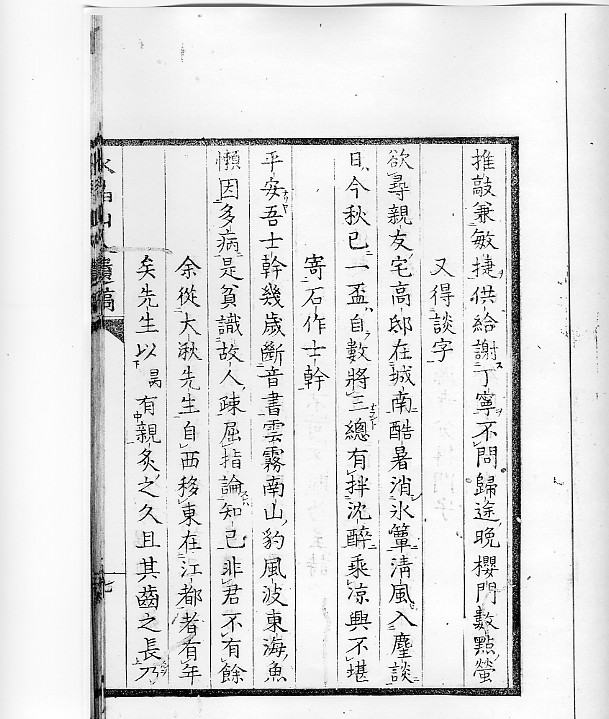 推敲兼敏捷供給謝丁寧不問歸途晩櫻門數點螢
又得談字
欲尋親友宅高邸在城南酷暑消氷簟清風入麈談
日今秋已一盃自數將三總有拌沈醉乘凉興不堪
寄石作士幹
平安吾士幹幾歲斷音書雲霧南山豹風波東海魚
懶因多病是貧識故人疎屈指論知己非君不有餘
余從大湫先生自西移東在江都者有年
矣先生以曷有親炙之久且其齒之長乃
遺稿
七